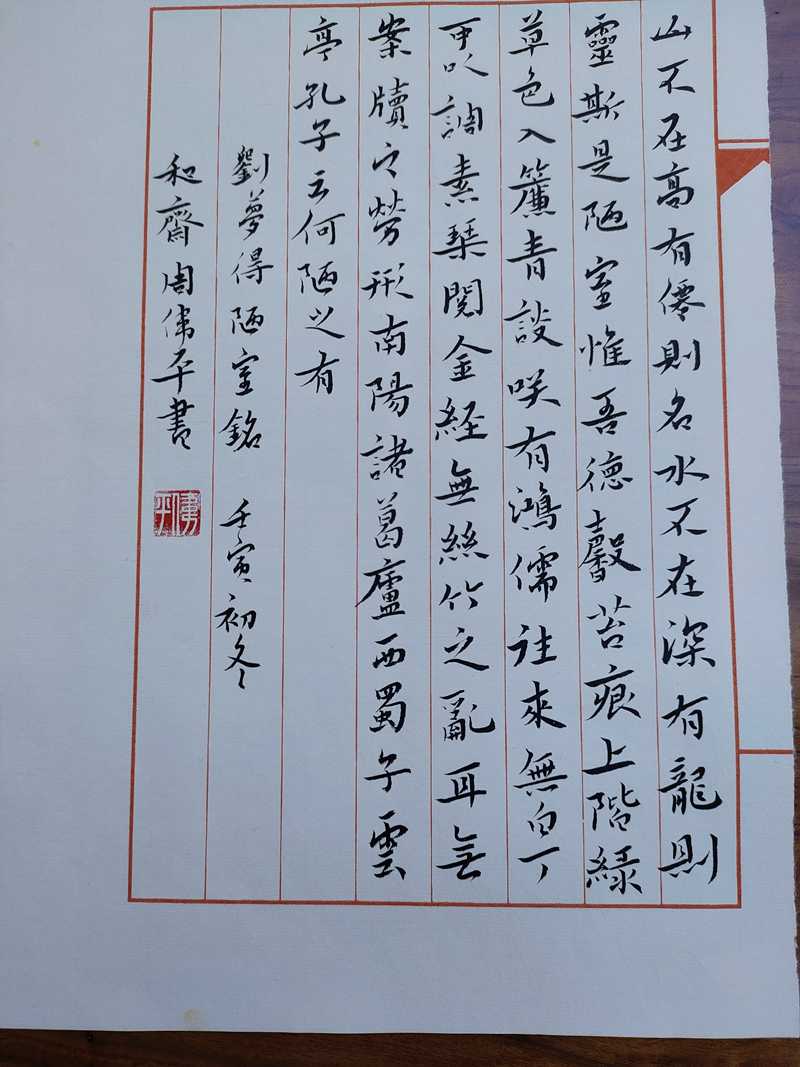 山不在高有僊則名水不在深有龍則
靈斯是陋室惟吾德馨苔痕上階緑
草色入簾青談咲有鴻儒往來無白丁
可以調素琴閱金経無絲竹之亂耳無
案牘之勞形南陽諸葛廬西蜀子雲
亭孔子云何陋之有
劉夢得陋室銘 壬寅初冬
和齋周偉平書
偉平